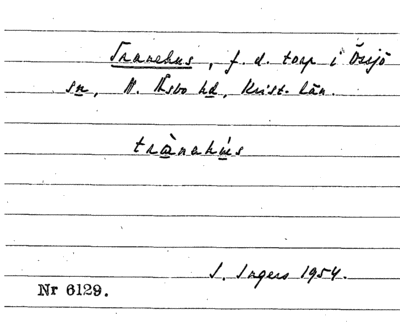 Tranehus, f. d. torp i Össjö
sn, N. Åsbo hd, Krist. län.
trànahús
I. Ingers 1954.
Nr 6129.